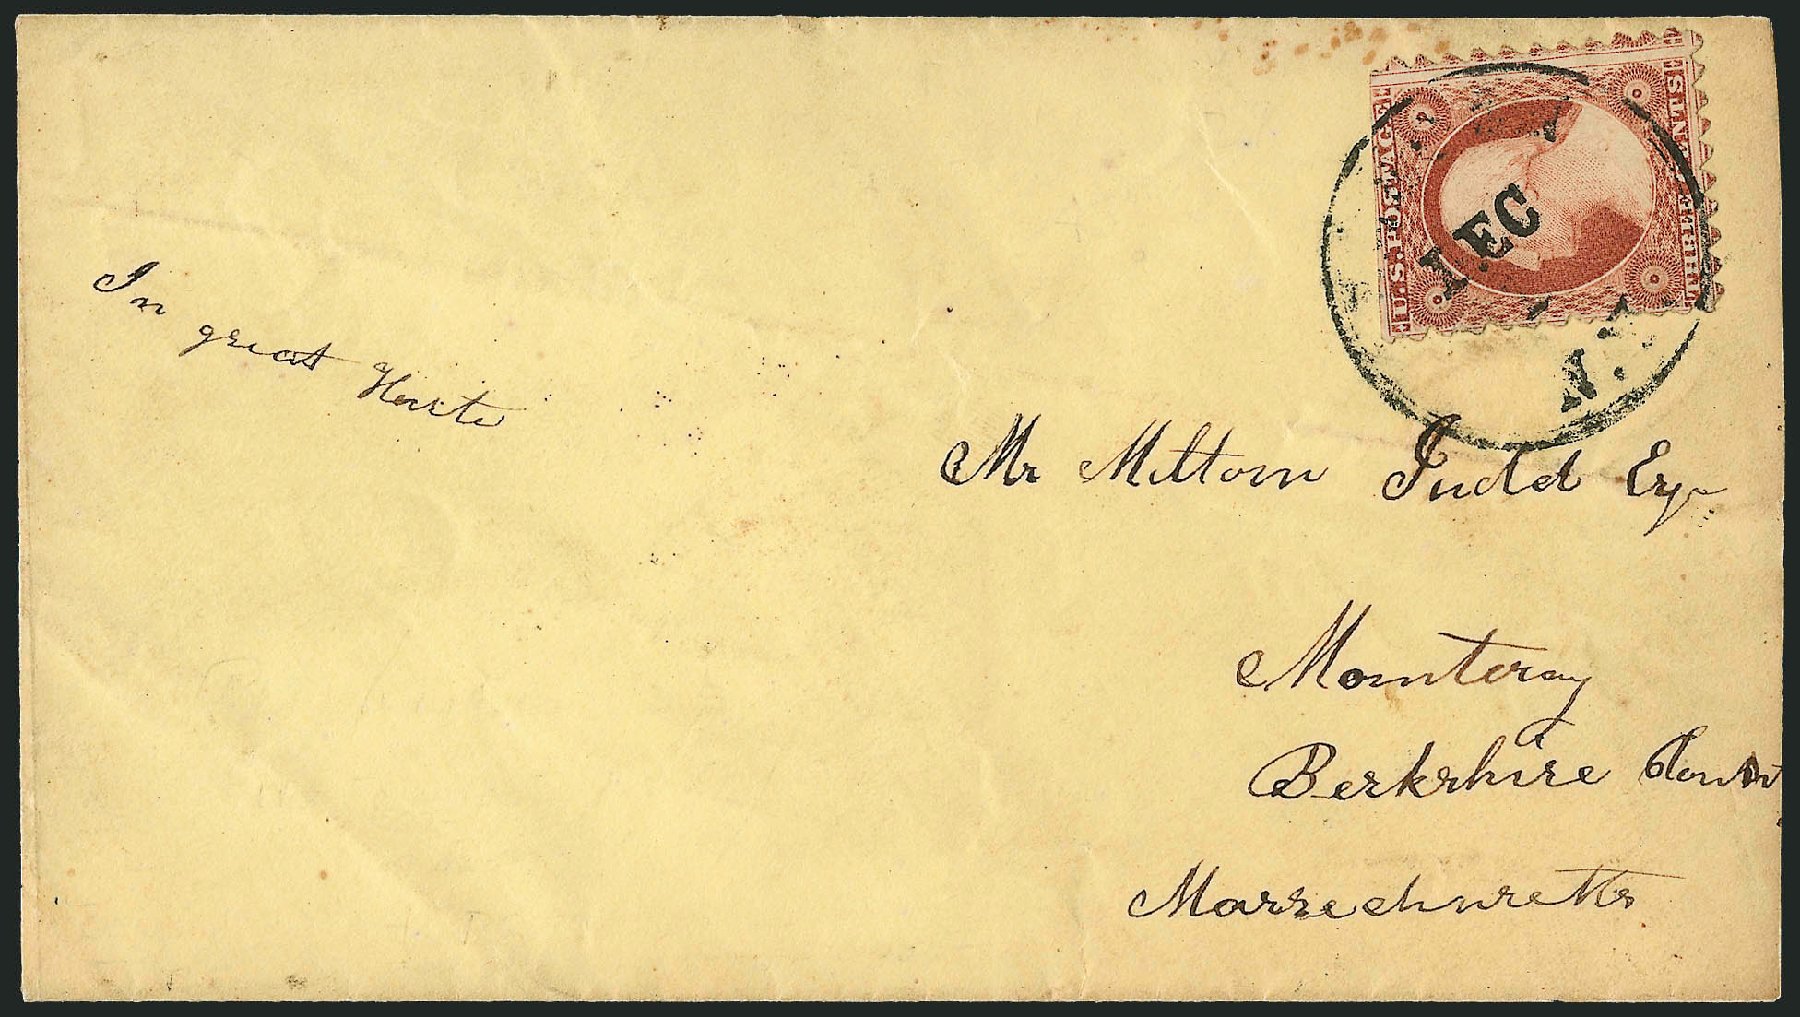 U.S. POSTAGE
THREE CENTS
DEC
N.Y.
In great Haste
Mr Milton Judd Esq
Monteray
Berkshire County
Massechusetts